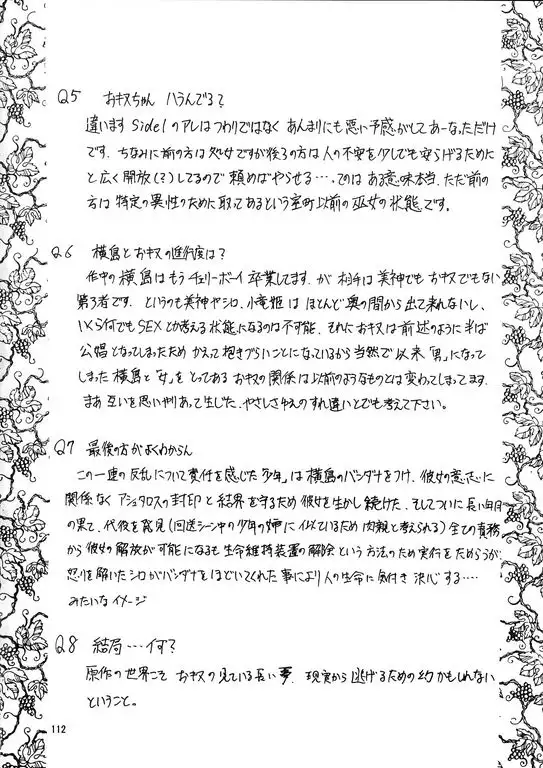 Q5 おキヌちゃん ハラんでる?
違います Side1のアレはつわりではなく あんまりにも悪い予感がしてあーなっただけ
です. ちなみに前の方は処女ですが後ろの方は人の不安を少しでも安らげるためにと
と広く開放(?)してるので 頼めばやらせる…. てのは ある意味本当. ただ前の
方は 特定の異性のために取ってあるという室町以前の巫女の状態です。
Q6 横島とおキヌの進行度は?
作中の横島はもうチェリーボーイ卒業してます. が 相手は美神でもおキヌでもない
第3者です. というのも美神やシロ、小竜姫はほとんど奥の間から出て来れないし、
いくら何でもSEXとか考える状態になるのは不可能. それにおキヌは前述のように半ば
公娼となってしまったため かえって抱きづらいことになっているから 当然で以来「男」になって
しまった横島と「女」をとってあるおキヌの関係は以前のようなものとは変わってしまってます.
まあ互いを思いやりあって生じた、やさしさゆえのすれ違いとでも考えて下さい。
Q7 最後の方がよくわからん
この一連の反乱について責任を感じた「少年」は横島のバンダナをつけ、彼女の意志に
関係なくアシュタロスの封印と結界を守るため彼女を生かし続けた、そしてついに長い年月
の果て、代役を発見(回送シーン中の少年の姉に似ているため肉親と考えられる)全ての責務
から彼女の解放が可能になるも生命維持装置の解除という方法のため実行をためらうが、
怒りを解いたシロがバンダナをほどいてくれた事により人の生命に気付き決心する….
みたいなイメージ
Q8 結局…何?
原作の世界こそおキヌの見ている長い夢. 現実から逃げるための幻かもしれない
ということ。
112